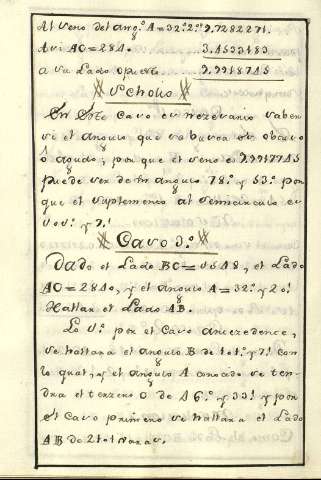 Al seno del ang.º A = 32.º 20' 9.7282271.
Asi AC = 284. 3.4533183
a su Lado opuesto 9.9918745
Scholio
En este caso es nezesario saber
si el angulo que se busca es obtuso
ó agudo; por que el seno es 9.9917745
puede ser de un angulo 78.º y 53.' por
que el suplemento al semicirculo es
y 7.'
Caso 3.º
Dado el Lado BC = 1548, el Lado
AC = 2840, y el angulo A = 32.º y 20'
Hallar el Lado AB.
Lo 1.º por el Caso antecedente,
se hallara el angulo B de 101.º y 7.' con
lo qual, y el angulo A conocido se ten-
dra el terzero C de 46.º y 33.' y por
el Caso primero se hallara el Lado
AB de 2101 varas.